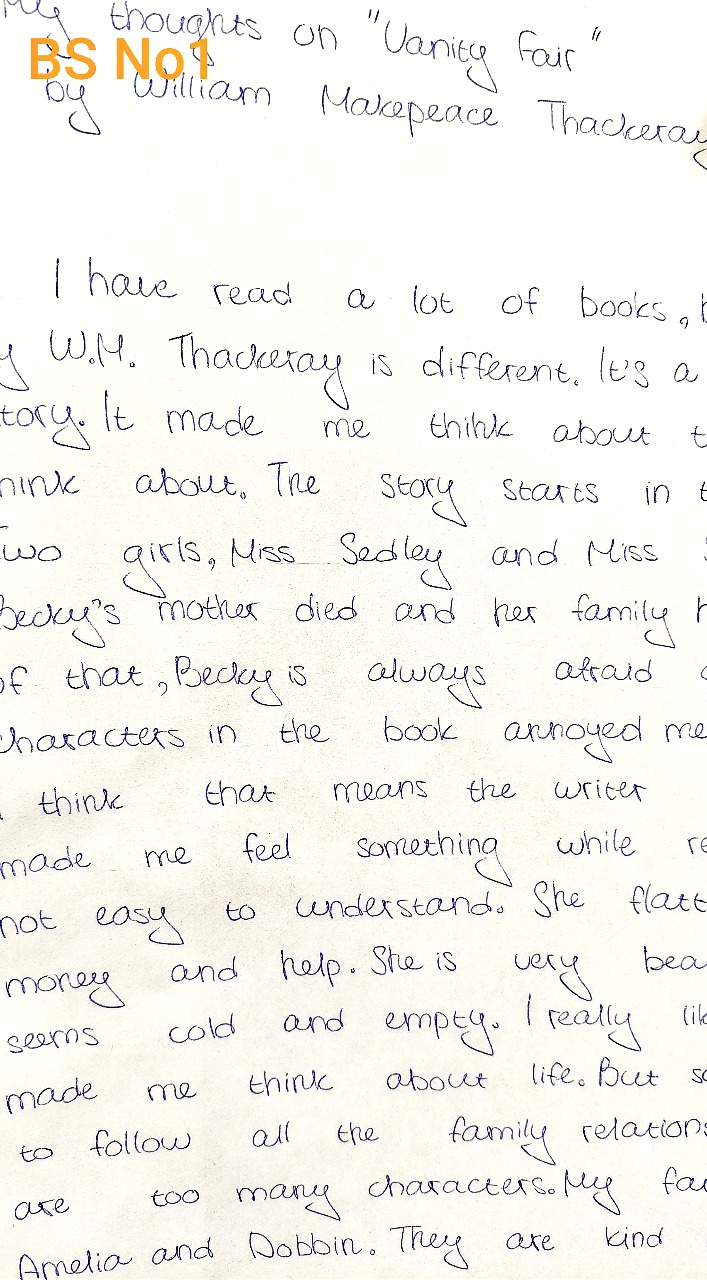 My thoughts on "Vanity Fair"
BS No1
by William Makepeace Thackeray
I have read a lot of books, b
y W.M. Thackeray is different. It's a
tory. It made me think about t
hink about. The story starts in t
Two girls, Miss Sedley and Miss S
Becky's mother died and her family h
of that, Becky is always afraid o
characters in the book annoyed me
I think that means the writer
made me feel something while re
not easy to understand. She flatt
money and help. She is very beau
seems cold and empty. I really lik
made me think about life. But so
to follow all the family relations
are too many characters. My fav
Amelia and Dobbin. They are kind